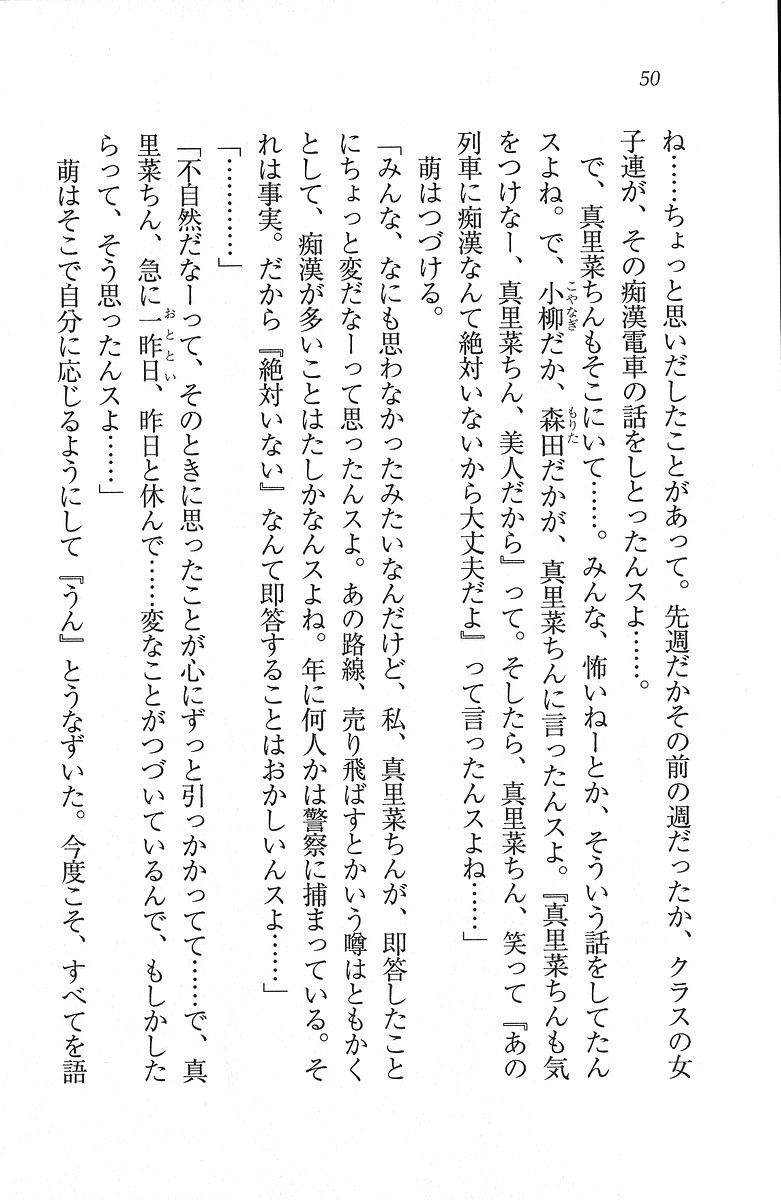 50
ね……ちょっと思いだしたことがあって。先週だかその前の週だったか、クラスの女
子連が、その痴漢電車の話をしとったんスよ……。
で、真里菜ちんもそこにいて……。みんな、怖いねーとか、そういう話をしてたん
スよね。で、小柳だか、森田だかが、真里菜ちんに言ったんスよ。『真里菜ちんも気
をつけなー、真里菜ちん、美人だから』って。そしたら、真里菜ちん、笑って『あの
列車に痴漢なんて絶対いないから大丈夫だよ』って言ったんスよね……」
萌はつづける。
「みんな、なにも思わなかったみたいなんだけど、私、真里菜ちんが、即答したこと
にちょっと変だなーって思ったんスよ。あの路線、売り飛ばすとかいう噂はともかく
として、痴漢が多いことはたしかなんスよね。年に何人かは警察に捕まっている。そ
れは事実。だから『絶対いない』なんて即答することはおかしいんスよ……」
「…………」
「不自然だなーって、そのときに思ったことが心にずっと引っかかってて……で、真
里菜ちん、急に一昨日、昨日と休んで……変なことがつづいているんで、もしかした
らって、そう思ったんスよ……」
萌はそこで自分に応じるようにして『うん』とうなずいた。今度こそ、すべてを語
こやなぎ
もりた
おととい